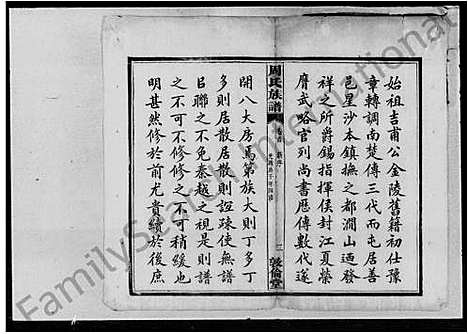 始祖吉甫公金陵舊籍初仕豫
章轉調南楚傳三代而屯居善
邑星沙本鎮撫之都澗山迺發
祥之所爵錫指揮侯封江夏榮
膺武略官列尚書歷傳數代遂
周氏族譜
卷首
二
敦倫堂
開八大房焉第族大則丁多丁
多則居散居散則誼疎使無譜
以聯之不免秦越之視是則譜
之不可不修修之不可稍緩也
明甚然修於前尤貴續於後庶
FamilySearch International